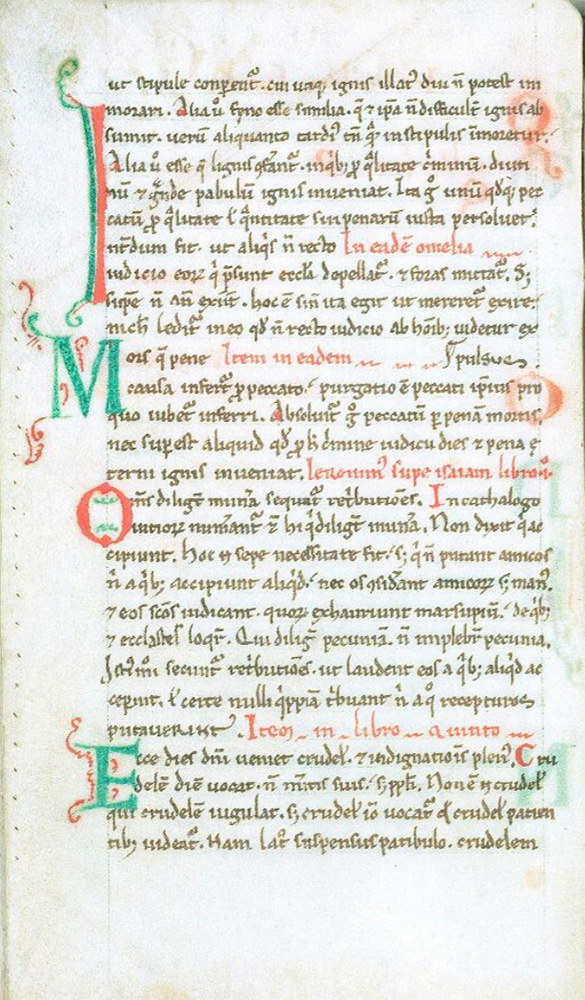 ut stipule conꝑent᷑. cui uaq; ignis illat᷒ diu n̄ potest im
morari. Alia ů fęno esse similia. q̄ ⁊ ip̄a n̄ difficulē ignis ab
sumit. uerū aliquanto tardi᷒ tn̄ q̄ in stipulis īmoretur.
Alia ů esse q̄ lignis ꝯfant᷑. in qͥb; ꝓ q̄litate c̓minum. diuti
nū ⁊ g̓nde pabulū ignis inueniat. Ita g̊ unū qdq; pec
catū ꝓ q̄litate ł q̄ntitate sui penarū iusta persoluet᷒.
Int̓dum fit. ut aliqͥs n̄ recto In eadē omelia
iudicio eoꝝ qͥ p̄sunt eccłę depellat᷑. ⁊ foras mittat᷑. S;
si ipse n̄ an̄ exiit. hoc ē si n̄ ita egit ut mereret᷑ exire.
nichil ledit᷑ in eo qd̄ n̄ recto iudicio ab hoīb; uidetur ex
Mors q̄ pene Item in eadem pulsus
causa infert᷑ ꝓ peccato. purgatio ē peccati ip̄ius pro
quo iubet᷑ inferri. Absoluit᷑ g̊ peccatū ꝑ penā mortis.
nec suꝑest aliquid qd̄ ꝓ h̓ c̓mine iudicii dies ⁊ pena ę
terni ignis inueniat. Ieronim᷒ supe isaiam libro .i.
Om̄s diligt̄ mun̓a sequnt᷑ ret̓butiōes. In cathalogo
uitioꝝ num̓ant᷑ ⁊ hi qͥ diligt̄ mun̓a. Non dixit q͛ ac
cipiunt. Hoc .n. sepe necessitate fit. s; qͥ n̄ putant amicos
n̄ a qͥb; accipiunt aliqͥd. nec ꝯsid̓ant amicoꝝ s; man᷒.
⁊ eos scōs iudicant. quoꝝ exhauriunt marsupiū. de qͥb;
⁊ ecclastes loqt᷑. Qui diligit̄ pecuniā. n̄ implebit᷑ pecunia.
Isti .n. secunt᷑ ret̓butiōes. ut laudent eos a qͥb; aliqͥd ac
ceperint. ł certe nulli qͥppiā t̓buant n̄ a qͦ recepturos
putauerint. Item in libro quinto
Ecce dies dn̄i ueniet crudeł. ⁊ indignatiois plen᷒. Cru
delē diē uocat. n̄ m̓itis suis. s; pplī. Non ē .n. crudeł
qui crudelē iugulat. s; crudeł iō uocat᷑ qd̄ crudeł patien
tib; uideat᷑. Nam lat᷑ suspensus patibulo. crudelem